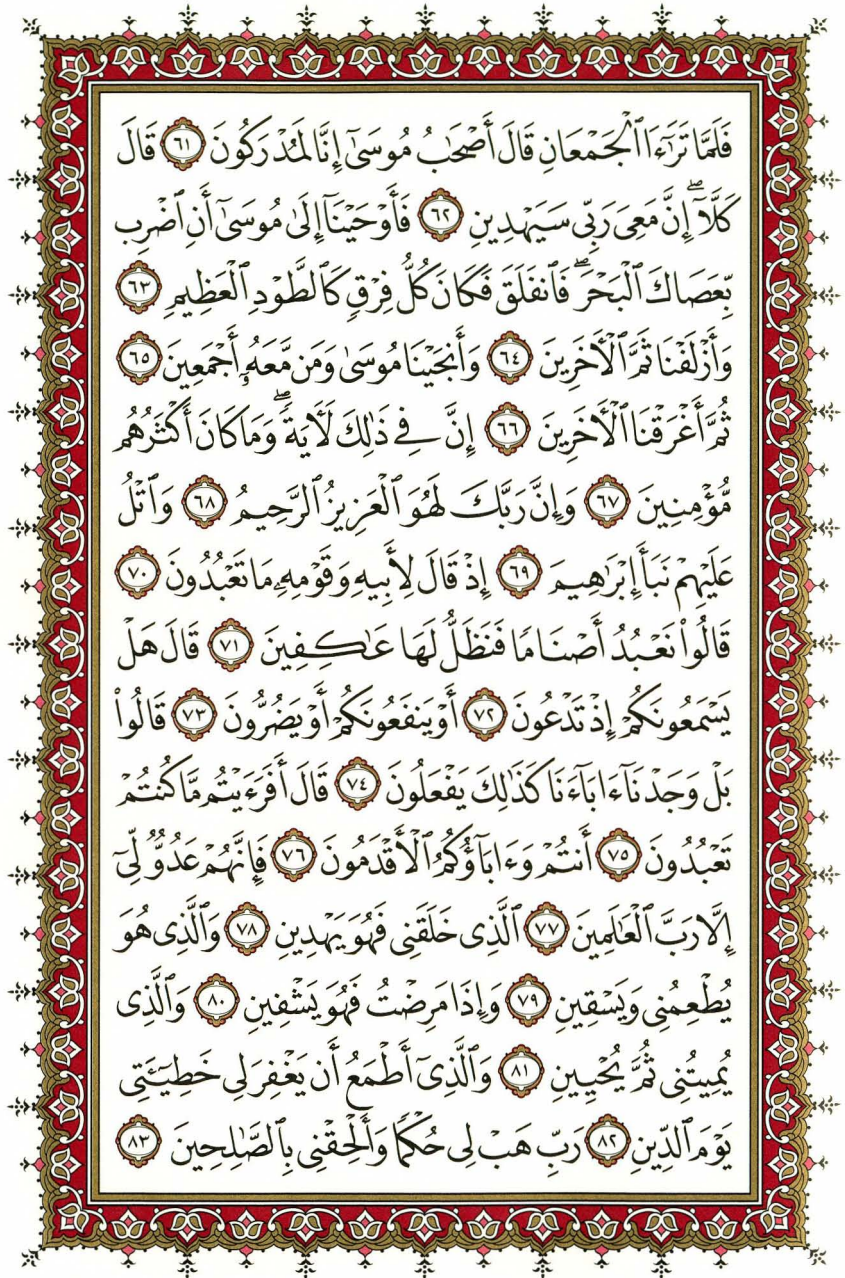 فَلَمَّا تَرَٰٓءَا ٱلْجَمْعَانِ قَالَ أَصْحَٰبُ مُوسَىٰٓ إِنَّا لَمُدْرَكُونَ ٦١ قَالَ
كَلَّآ ۖ إِنَّ مَعِىَ رَبِّى سَيَهْدِينِ ٦٢ فَأَوْحَيْنَآ إِلَىٰ مُوسَىٰٓ أَنِ ٱضْرِب
بِّعَصَاكَ ٱلْبَحْرَ ۖ فَٱنفَلَقَ فَكَانَ كُلُّ فِرْقٍ كَٱلطَّوْدِ ٱلْعَظِيمِ ٦٣
وَأَزْلَفْنَا ثَمَّ ٱلْءَاخَرِينَ ٦٤ وَأَنجَيْنَا مُوسَىٰ وَمَن مَّعَهُۥٓ أَجْمَعِينَ ٦٥
ثُمَّ أَغْرَقْنَا ٱلْءَاخَرِينَ ٦٦ إِنَّ فِى ذَٰلِكَ لَءَايَةً ۖ وَمَا كَانَ أَكْثَرُهُم
مُّؤْمِنِينَ ٦٧ وَإِنَّ رَبَّكَ لَهُوَ ٱلْعَزِيزُ ٱلرَّحِيمُ ٦٨ وَٱتْلُ
عَلَيْهِمْ نَبَأَ إِبْرَٰهِيمَ ٦٩ إِذْ قَالَ لِأَبِيهِ وَقَوْمِهِۦ مَا تَعْبُدُونَ ٧٠
قَالُوا۟ نَعْبُدُ أَصْنَامًا فَنَظَلُّ لَهَا عَٰكِفِينَ ٧١ قَالَ هَلْ
يَسْمَعُونَكُمْ إِذْ تَدْعُونَ ٧٢ أَوْ يَنفَعُونَكُمْ أَوْ يَضُرُّونَ ٧٣ قَالُوا۟
بَلْ وَجَدْنَآ ءَابَآءَنَا كَذَٰلِكَ يَفْعَلُونَ ٧٤ قَالَ أَفَرَءَيْتُم مَّا كُنتُمْ
تَعْبُدُونَ ٧٥ أَنتُمْ وَءَابَآؤُكُمُ ٱلْأَقْدَمُونَ ٧٦ فَإِنَّهُمْ عَدُوٌّ لِّىٓ
إِلَّا رَبَّ ٱلْعَٰلَمِينَ ٧٧ ٱلَّذِى خَلَقَنِى فَهُوَ يَهْدِينِ ٧٨ وَٱلَّذِى هُوَ
يُطْعِمُنِى وَيَسْقِينِ ٧٩ وَإِذَا مَرِضْتُ فَهُوَ يَشْفِينِ ٨٠ وَٱلَّذِى
يُمِيتُنِى ثُمَّ يُحْيِينِ ٨١ وَٱلَّذِىٓ أَطْمَعُ أَن يَغْفِرَ لِى خَطِيٓـَٔتِى
يَوْمَ ٱلدِّينِ ٨٢ رَبِّ هَبْ لِى حُكْمًا وَأَلْحِقْنِى بِٱلصَّٰلِحِينَ ٨٣